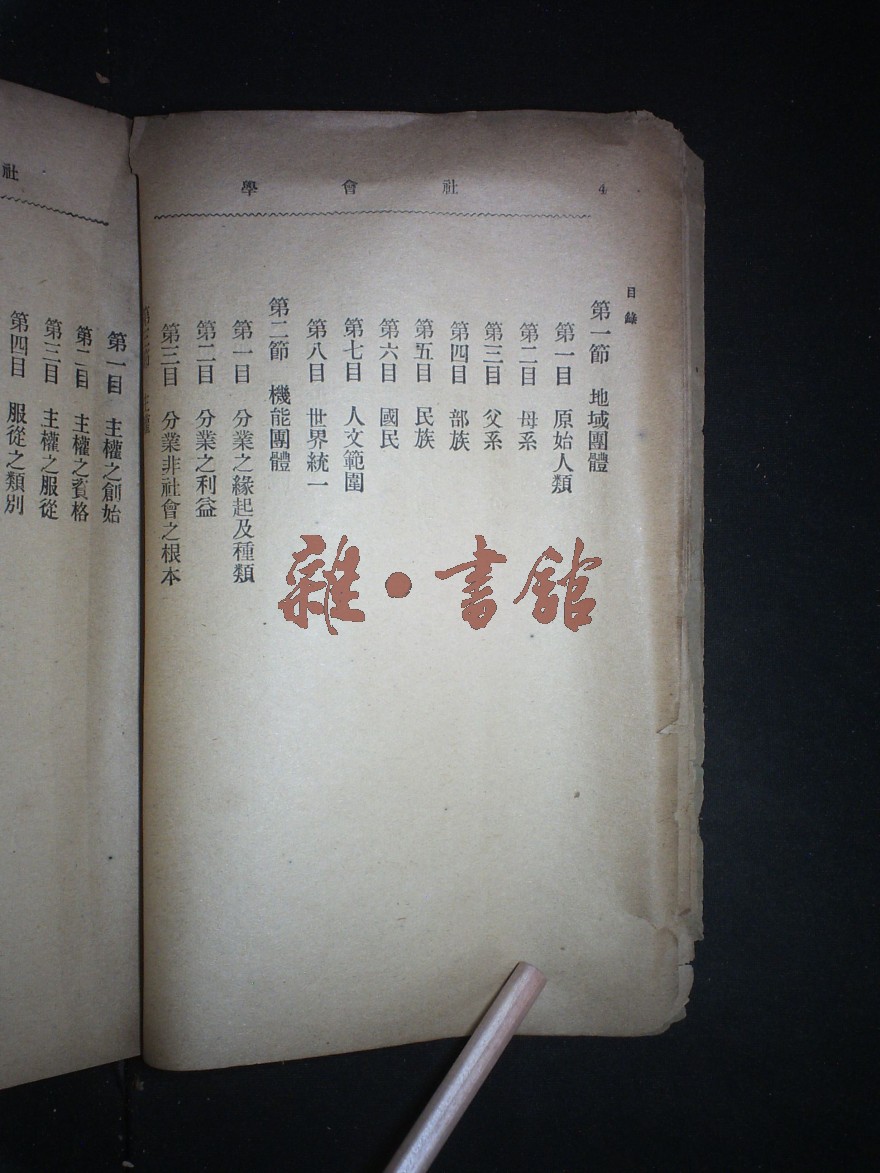 4 社會學
目錄
第一節 地域團體
第一目 原始人類
第二目 母系
第三目 父系
第四目 部族
第五目 民族
第六目 國民
第七目 人文範圍
第八目 世界統一
第二節 機能團體
第一目 分業之緣起及種類
第二目 分業之利益
第三目 分業非社會之根本
社
第一目 主權之創始
第二目 主權之資格
第三目 主權之服從
第四目 服從之類別
雜·書館